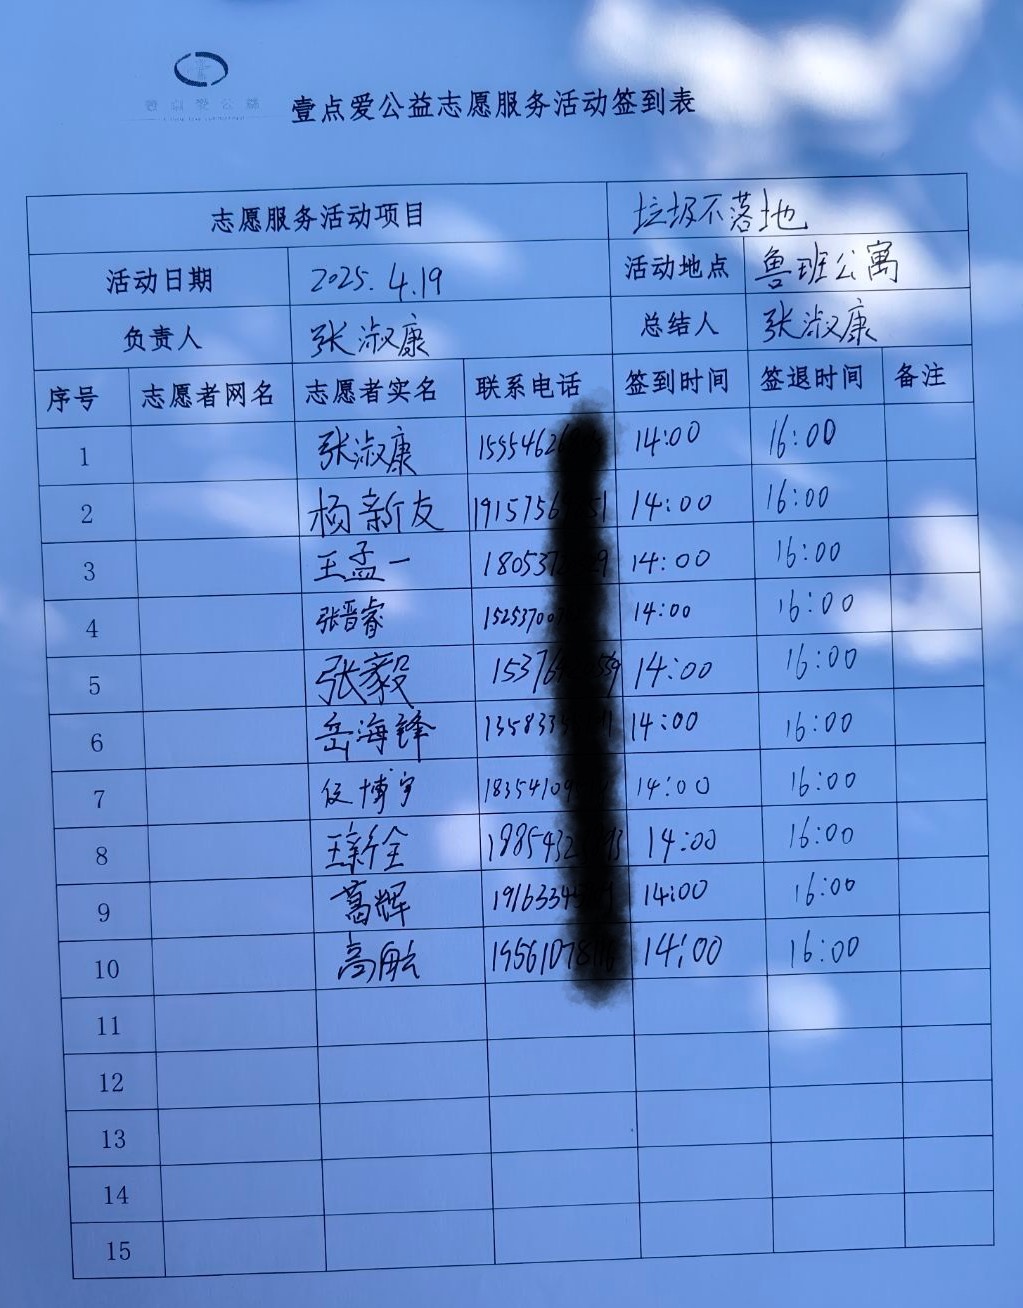 壹点爱公益
壹点爱公益志愿服务活动签到表
志愿服务活动项目 垃圾不落地
活动日期 2025.4.19 活动地点 鲁班公寓
负责人 张淑康 总结人 张淑康
序号 志愿者网名 志愿者实名 联系电话 签到时间 签退时间 备注
1 张淑康 1595462 14:00 16:00
2 杨新友 1915756 51 14:00 16:00
3 王孟一 180537 9 14:00 16:00
4 张晋睿 15253700 14:00 16:00
5 张毅 15376 59 14:00 16:00
6 岳海锋 135833 1 14:00 16:00
7 博宇 18354109 14:00 16:00
8 王新全 1985432 93 14:00 16:00
9 葛辉 1916334 14:00 16:00
10 高航 1956107 14:00 16:00
11
12
13
14
15